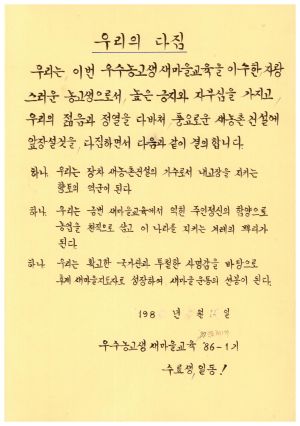 우리의 다짐
우리는 이번 우수농고생 새마을교육을 이수한 자랑
스러운 농고생으로서, 높은 긍지와 자부심을 가지고
우리의 젊음과 정열을 다바쳐 풍요로운 새농촌건설에
앞장설것을 다짐하면서 다음과 같이 결의합니다.
하나. 우리는 장차 새농촌건설의 기수로서 내고장을 지키는
향토의 역군이 된다.
하나. 우리는 금번 새마을교육에서 익힌 주인정신의 함양으로
농업을 천직으로 삼고 이 나라를 지키는 겨레의 핵이가
된다.
하나. 우리는 확고한 국가관과 투철한 사명감을 바탕으로
후계 새마을지도자로 성장하여 새마을 운동의 선봉이 된다.
198 년 월 일
우수농고생 새마을교육 '86-1기
수료생 일동!